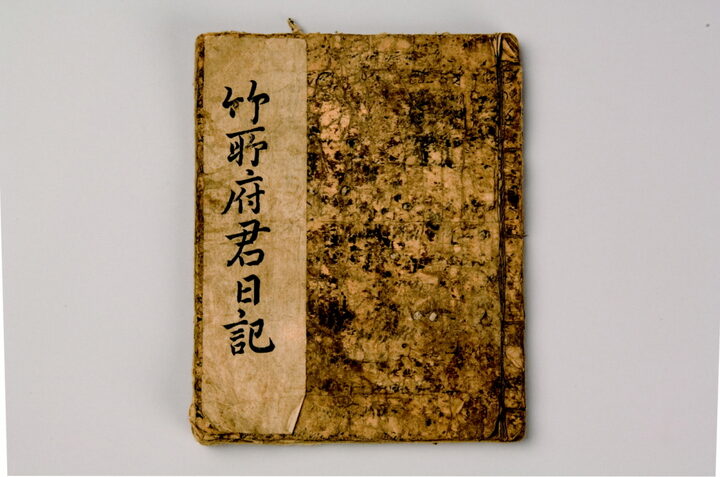 竹所府君日記